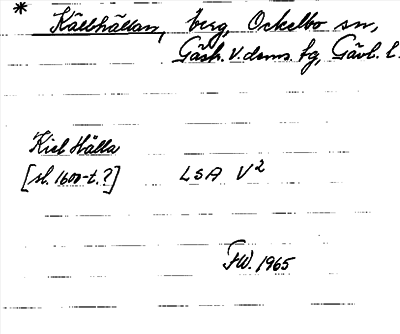 * Kälbhällan, berg, Ockelbo sn,
Gästr. V. doms. hg, Gävl. l.
Kiel Hälla
[sl. 1600-t.?] LSA V2
FW. 1965